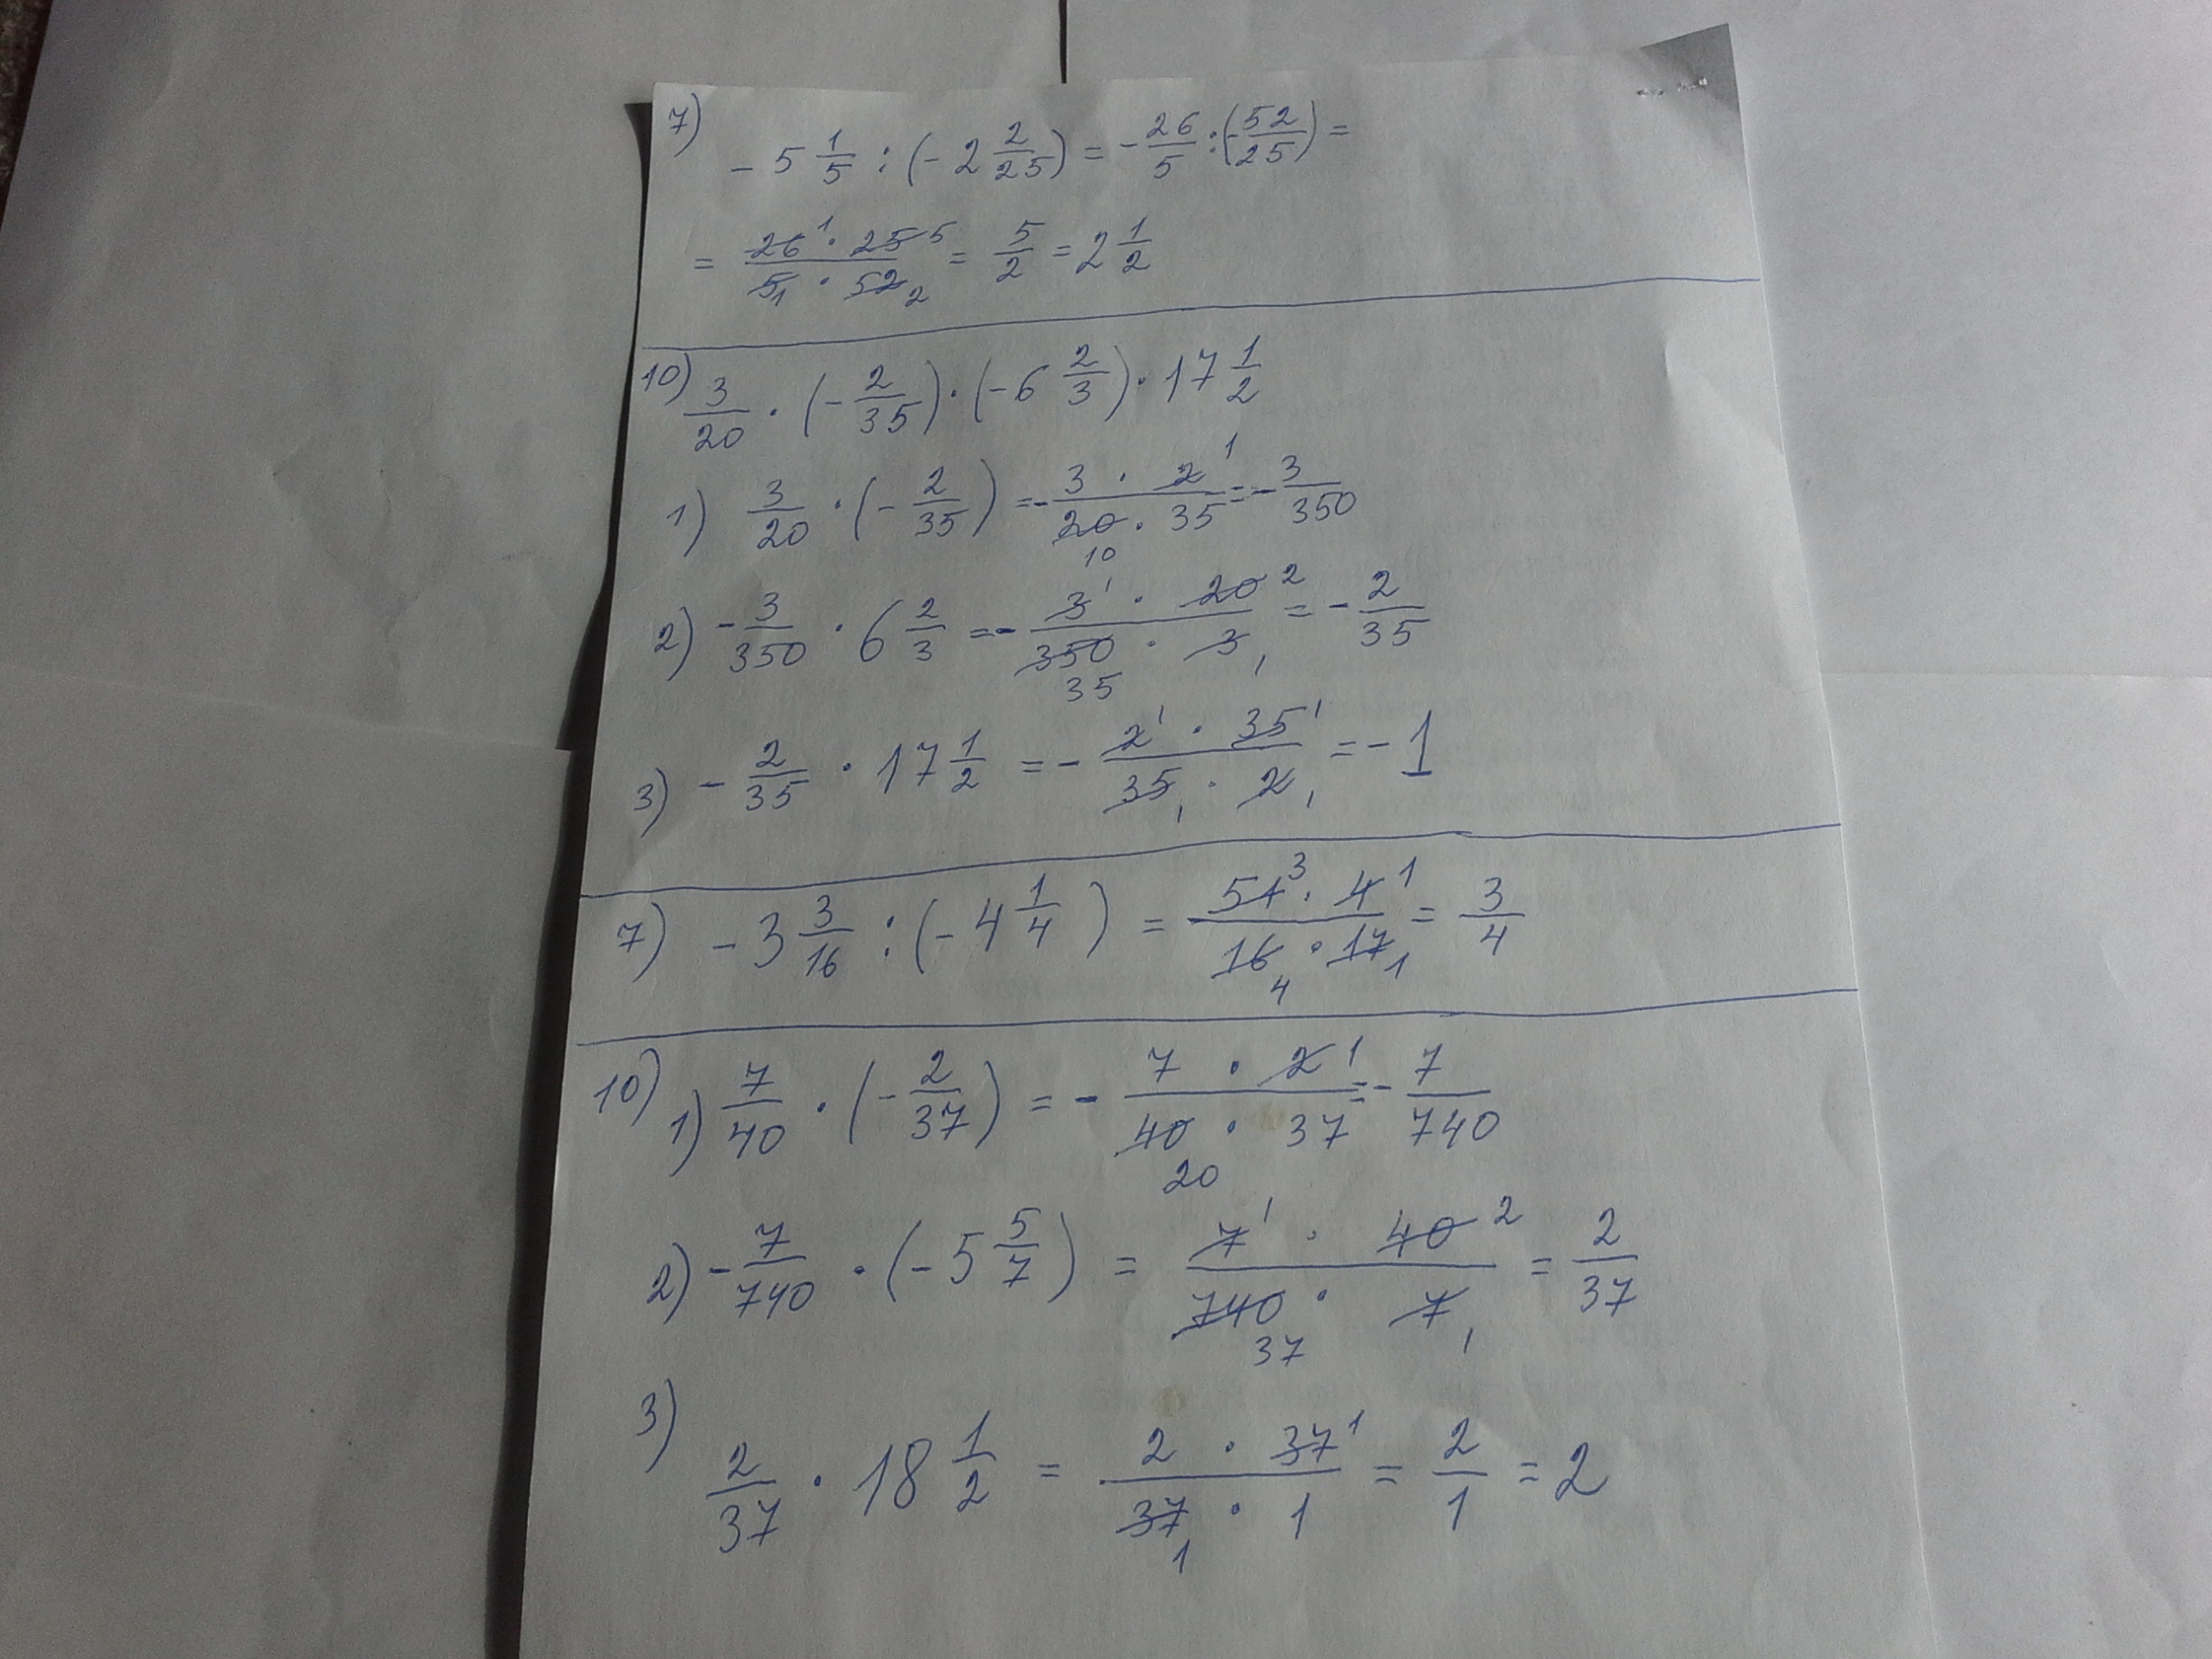 7)
- 5 1/5 : (- 2 2/25) = - 26/5 : (- 52/25) =
= 26 1 · 25 5 / 5 1 · 52 2 = 5/2 = 2 1/2
10) 3/20 · (- 2/35) · (- 6 2/3) · 17 1/2
1) 3/20 · (- 2/35) = - 3 · 2 1 / 20 10 · 35 = - 3/350
2) - 3/350 · 6 2/3 = - 3 1 · 20 2 / 350 35 · 3 1 = - 2/35
3) - 2/35 · 17 1/2 = - 2 1 · 35 1 / 35 1 · 2 1 = - 1
7) - 3 3/16 : (- 4 1/4) = 51 3 · 4 1 / 16 4 · 17 1 = 3/4
10) 1) 7/40 · (- 2/37) = - 7 · 2 1 / 40 20 · 37 = - 7/740
2) - 7/740 · (- 5 5/7) = 7 1 · 40 2 / 740 37 · 7 1 = 2/37
3) 2/37 · 18 1/2 = 2 · 37 1 / 37 1 · 1 = 2/1 = 2